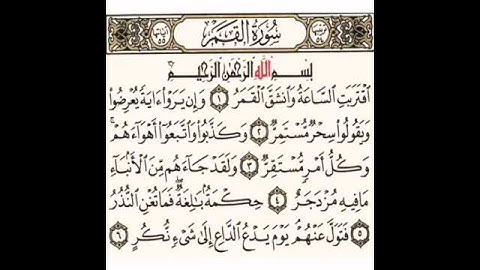 سُورَةُ القَمَرِ
بِسْمِ اللَّهِ الرَّحْمَٰنِ الرَّحِيمِ
اقْتَرَبَتِ السَّاعَةُ وَانشَقَّ الْقَمَرُ ١ وَإِن يَرَوْا ءَايَةً يُعْرِضُوا
وَيَقُولُوا سِحْرٌ مُّسْتَمِرٌّ ٢ وَكَذَّبُوا وَاتَّبَعُوا أَهْوَاءَهُمْ ۚ
وَكُلُّ أَمْرٍ مُّسْتَقِرٌّ ٣ وَلَقَدْ جَاءَهُم مِّنَ الْأَنبَاءِ
مَا فِيهِ مُزْدَجَرٌ ٤ حِكْمَةٌ بَالِغَةٌ ۖ فَمَا تُغْنِ النُّذُرُ
٥ فَتَوَلَّ عَنْهُمْ ۘ يَوْمَ يَدْعُ الدَّاعِ إِلَىٰ شَيْءٍ نُّكُرٍ ٦